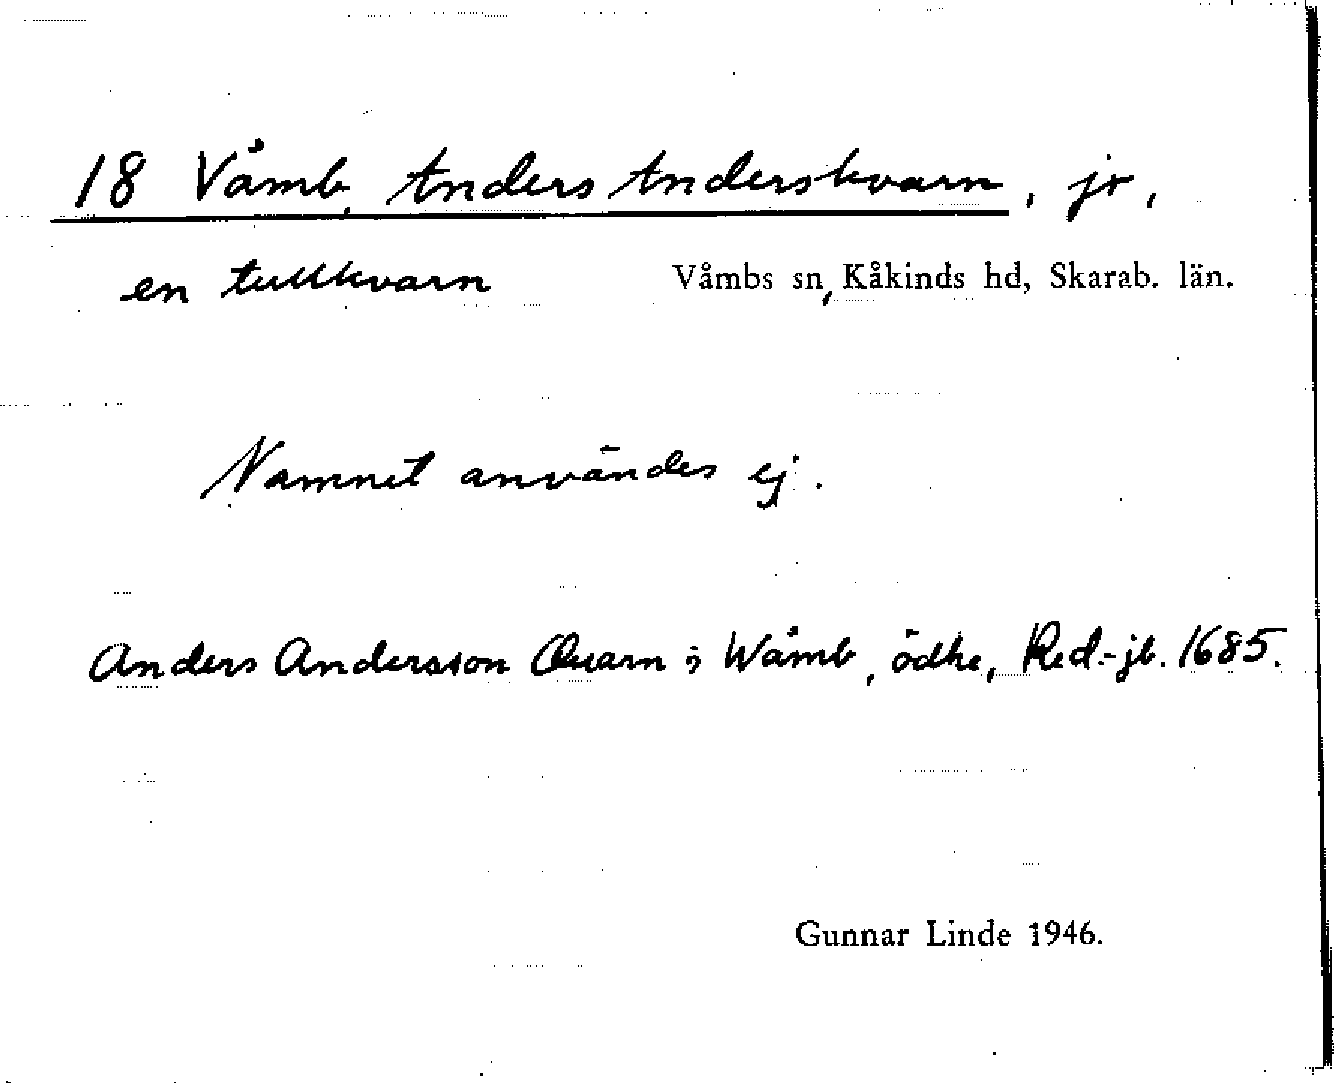 18 Våmb, Anders Anderskvarn, jr,
en tullkvarn Våmbs sn, Kåkinds hd, Skarab. län.
Namnet användes ej.
Anders Andersson Quarn i Wåmb, ödhe, Red.-jb. 1685.
Gunnar Linde 1946.